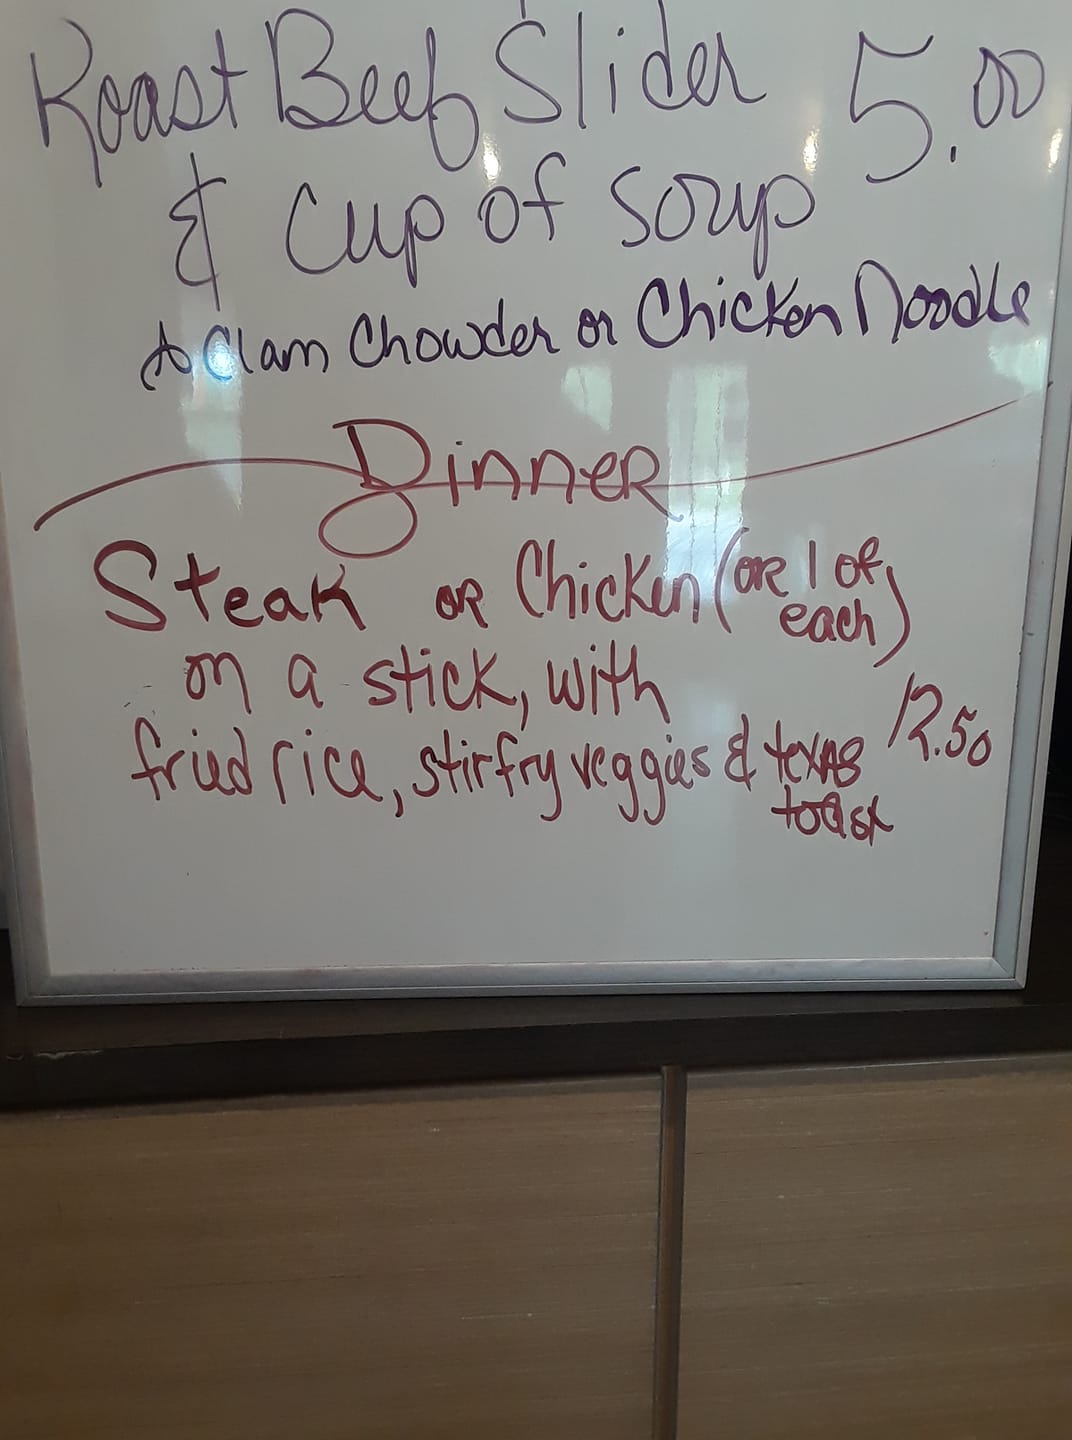 Roast Beef Slider 5.00
& Cup of soup
Clam Chowder or Chicken Noodle
Dinner
Steak or Chicken (or 1 of each)
on a stick, with
fried rice, stirfry veggies & texas toast 12.50